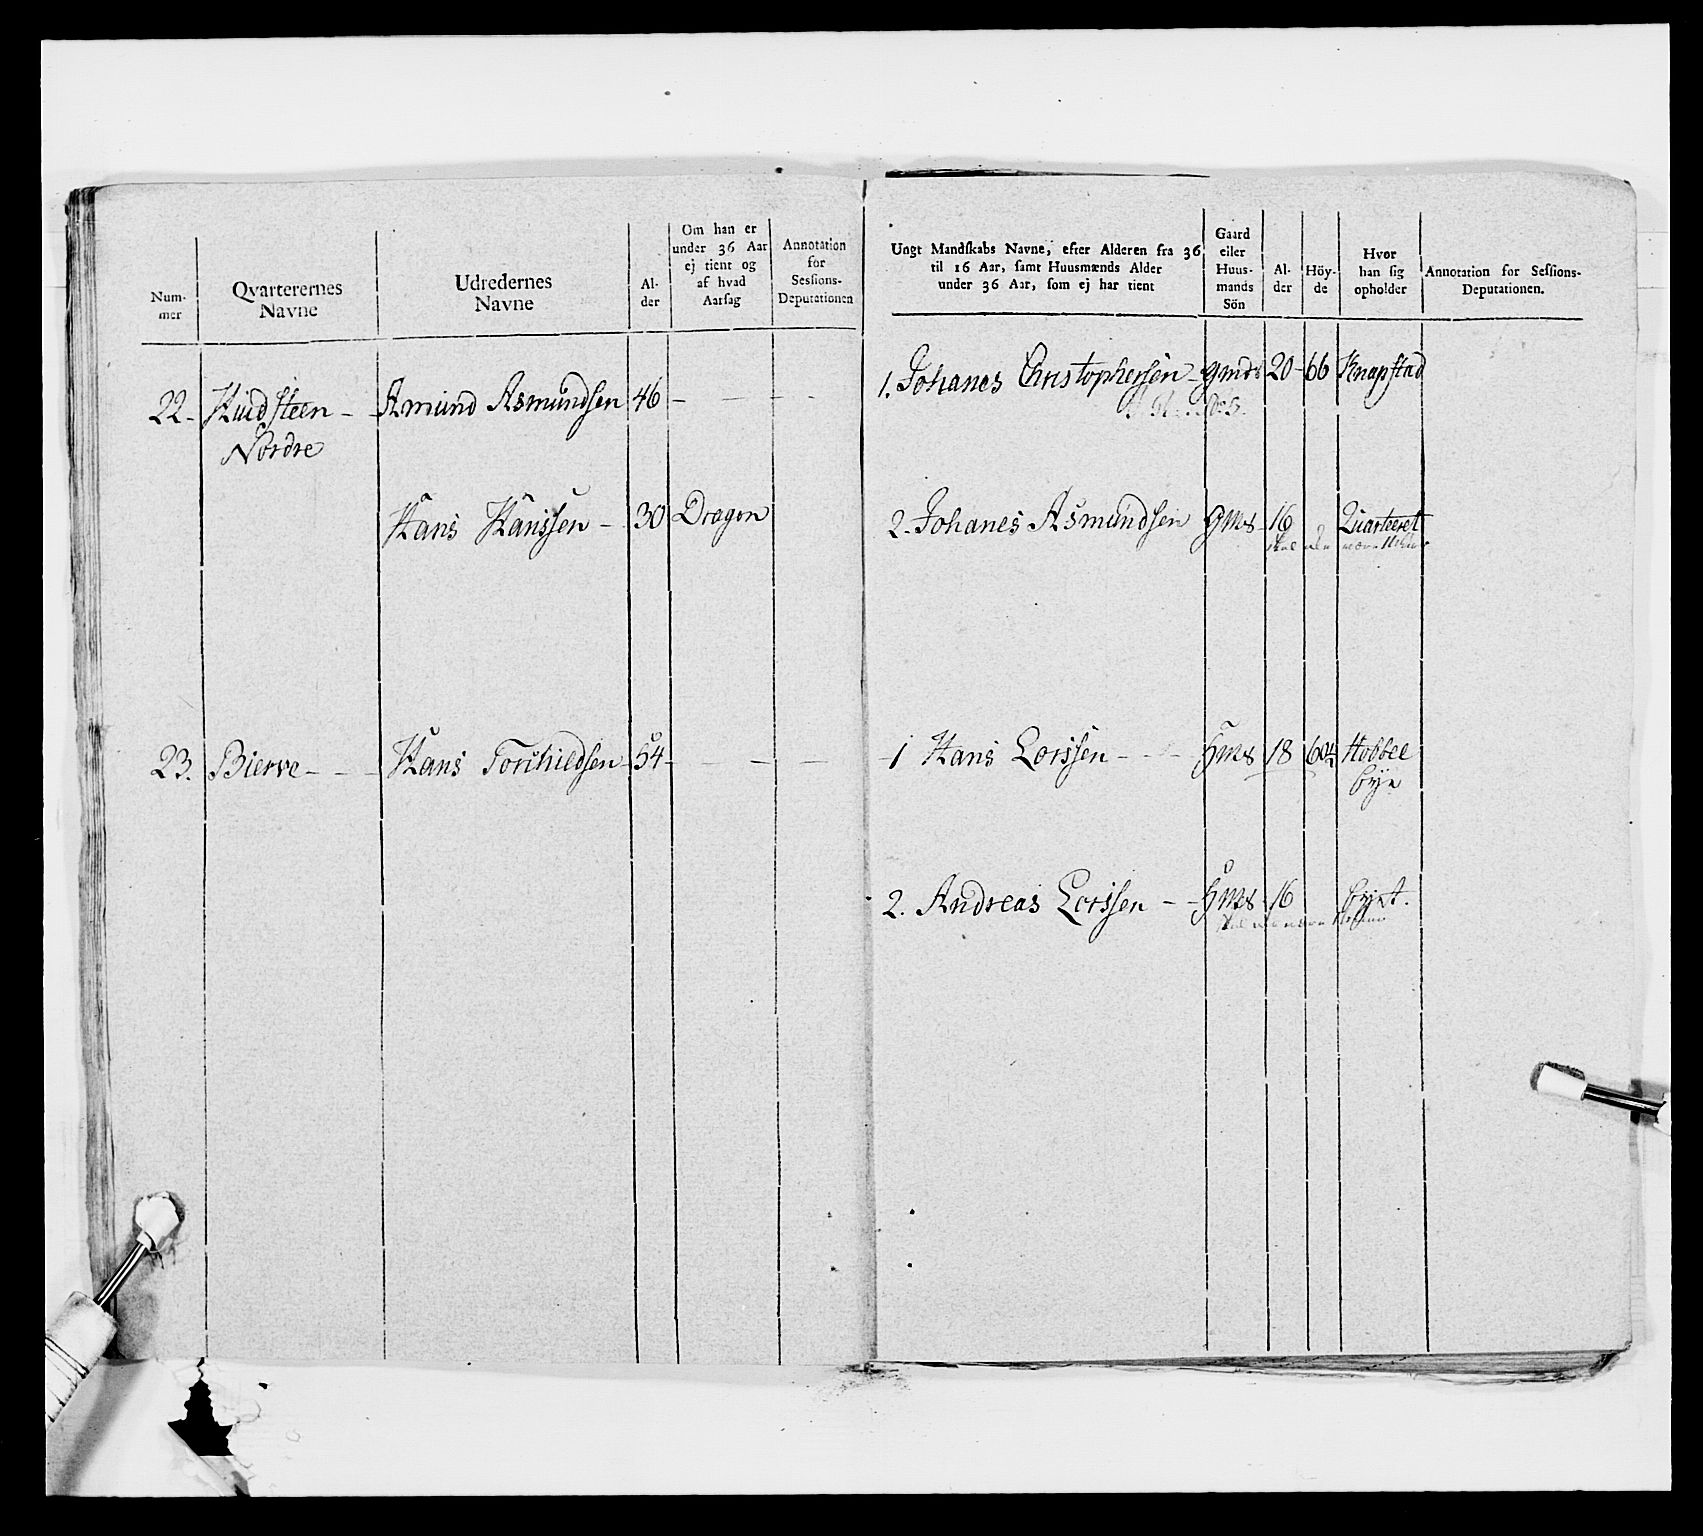 Num-
mer
Qvarterernes
Navne
Udredernes
Navne
Al-
der
Om han er
under 36 Aar
ej tient og
af hvad
Aarsag
Annotation
for
Sessions-
Deputationen
22. Huidsteen - Amund Asmundsen 46 - - - -
Nordre
Hans Hanssen - 30 Dragon
23. Bierve - - - Hans Torchildsen 54 - - - -
Ungt Mandskabs Navne, efter Alderen fra 36
til 16 Aar, samt Huusmænds Alder
under 36 Aar, som ej har tient
Gaard
eller
Huus-
mands
Sön
Al-
der
Höy-
de
Hvor
han sig
opholder
Annotation for Sessions-
Deputationen.
1. Johanes Christophersen - gmds 20 - 66 Knapstad
2. Johanes Asmundsen gms 16 Quarteret
skal være
1 Hans Lorssen - - - hms 18 60¾ Hobbel
byn
2. Andreas Lorssen - - hms 16 byet.
skal være